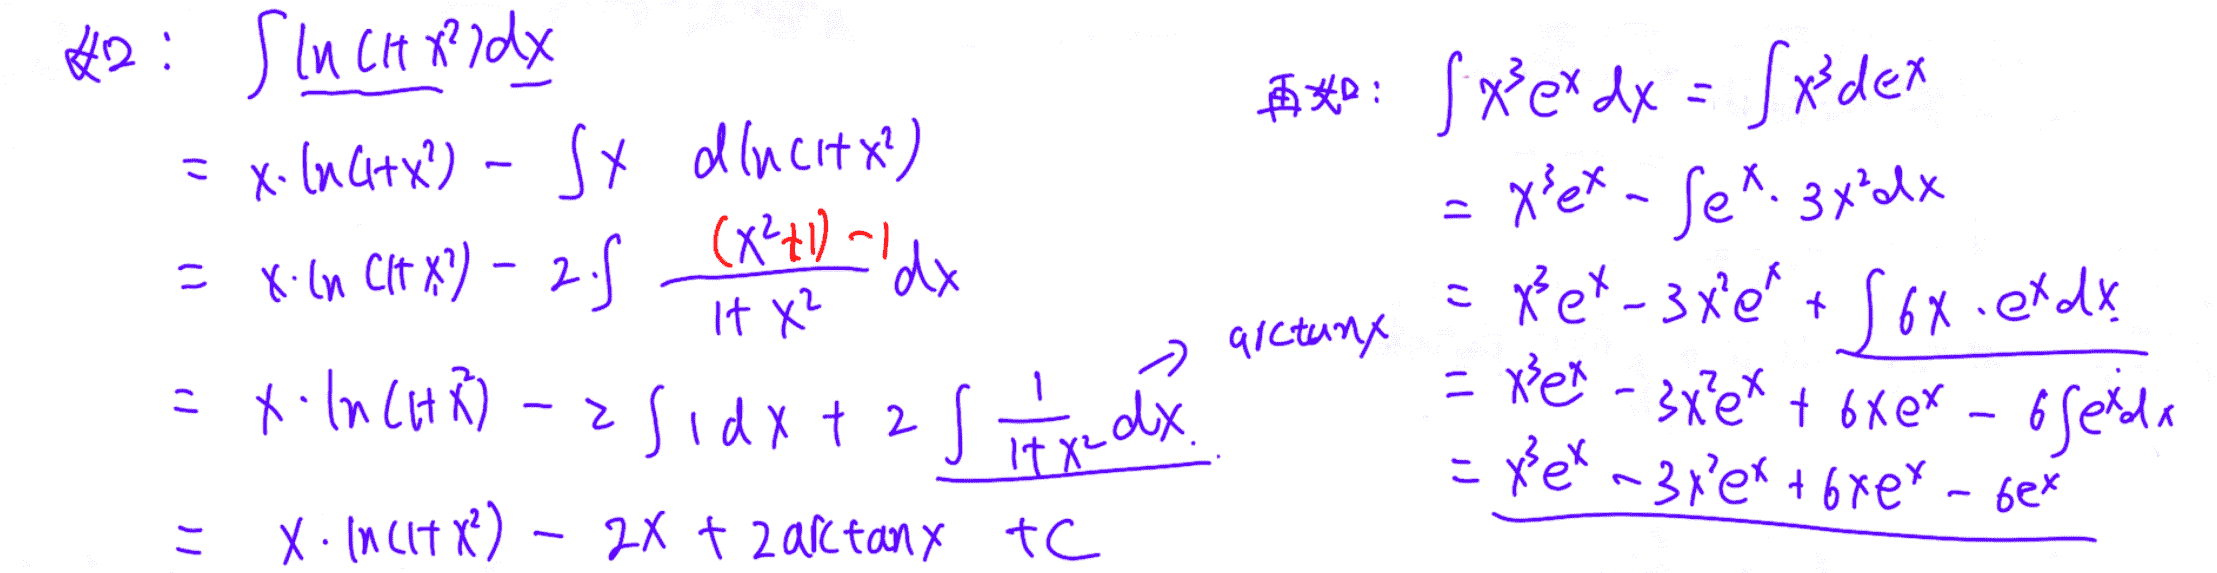 如: ∫ ln(1+x²)dx
= x·ln(1+x²) - ∫x d ln(1+x²)
= x·ln(1+x²) - 2·∫ ((x²+1)-1)/(1+x²) dx
= x·ln(1+x²) - 2∫1dx + 2∫ 1/(1+x²) dx. → arctanx
= x·ln(1+x²) - 2x + 2arctanx +C
再如: ∫x³eˣdx = ∫x³deˣ
= x³eˣ - ∫eˣ·3x²dx
= x³eˣ - 3x²eˣ + ∫6x·eˣdx
= x³eˣ - 3x²eˣ + 6xeˣ - 6∫eˣdx
= x³eˣ - 3x²eˣ + 6xeˣ - 6eˣ